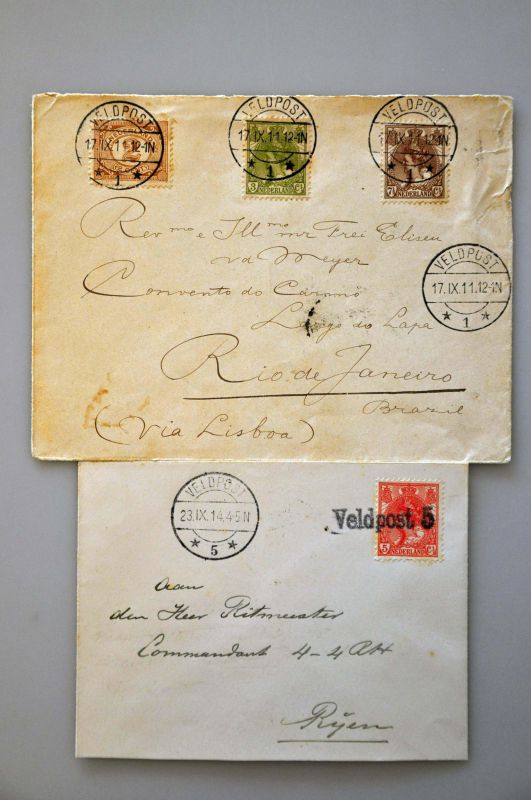 VELDPOST VELDPOST VELDPOST
17.IX.11.12-1N 17.IX.11.12-1N 17.IX.11.12-1N
1 1 1
3 Ct 7½ Ct
NEDERLAND NEDERLAND
Rev mo e Ill mo mr Frei Eliseu
va Meyer
Convento do Carmo
Largo do Lapa
Rio de Janeiro
Brazil
(Via Lisboa)
VELDPOST
17.IX.11.12-1N
1
VELDPOST
23.IX.14.4-5N
5
Veldpost 5
5 Ct
NEDERLAND
Aan
den Heer Ritmeester
Commandant 4-4 RH
Rijen